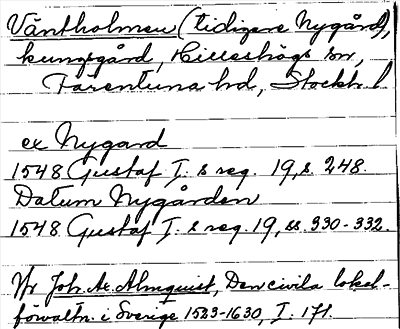 Väntholmen (tidigare Nygård),
kungsgård, Hilleshögs sn,
Färentuna hd, Stockh. l
ex Nygard
1548 Gustaf I. s reg. 19, s. 248.
Datum Nygården
1548 Gustaf I. s reg. 19, ss. 330-332.
Joh. Ax. Almquist, Den civila lokal-
förvaltn. i Sverige 1523-1630, I. 171.